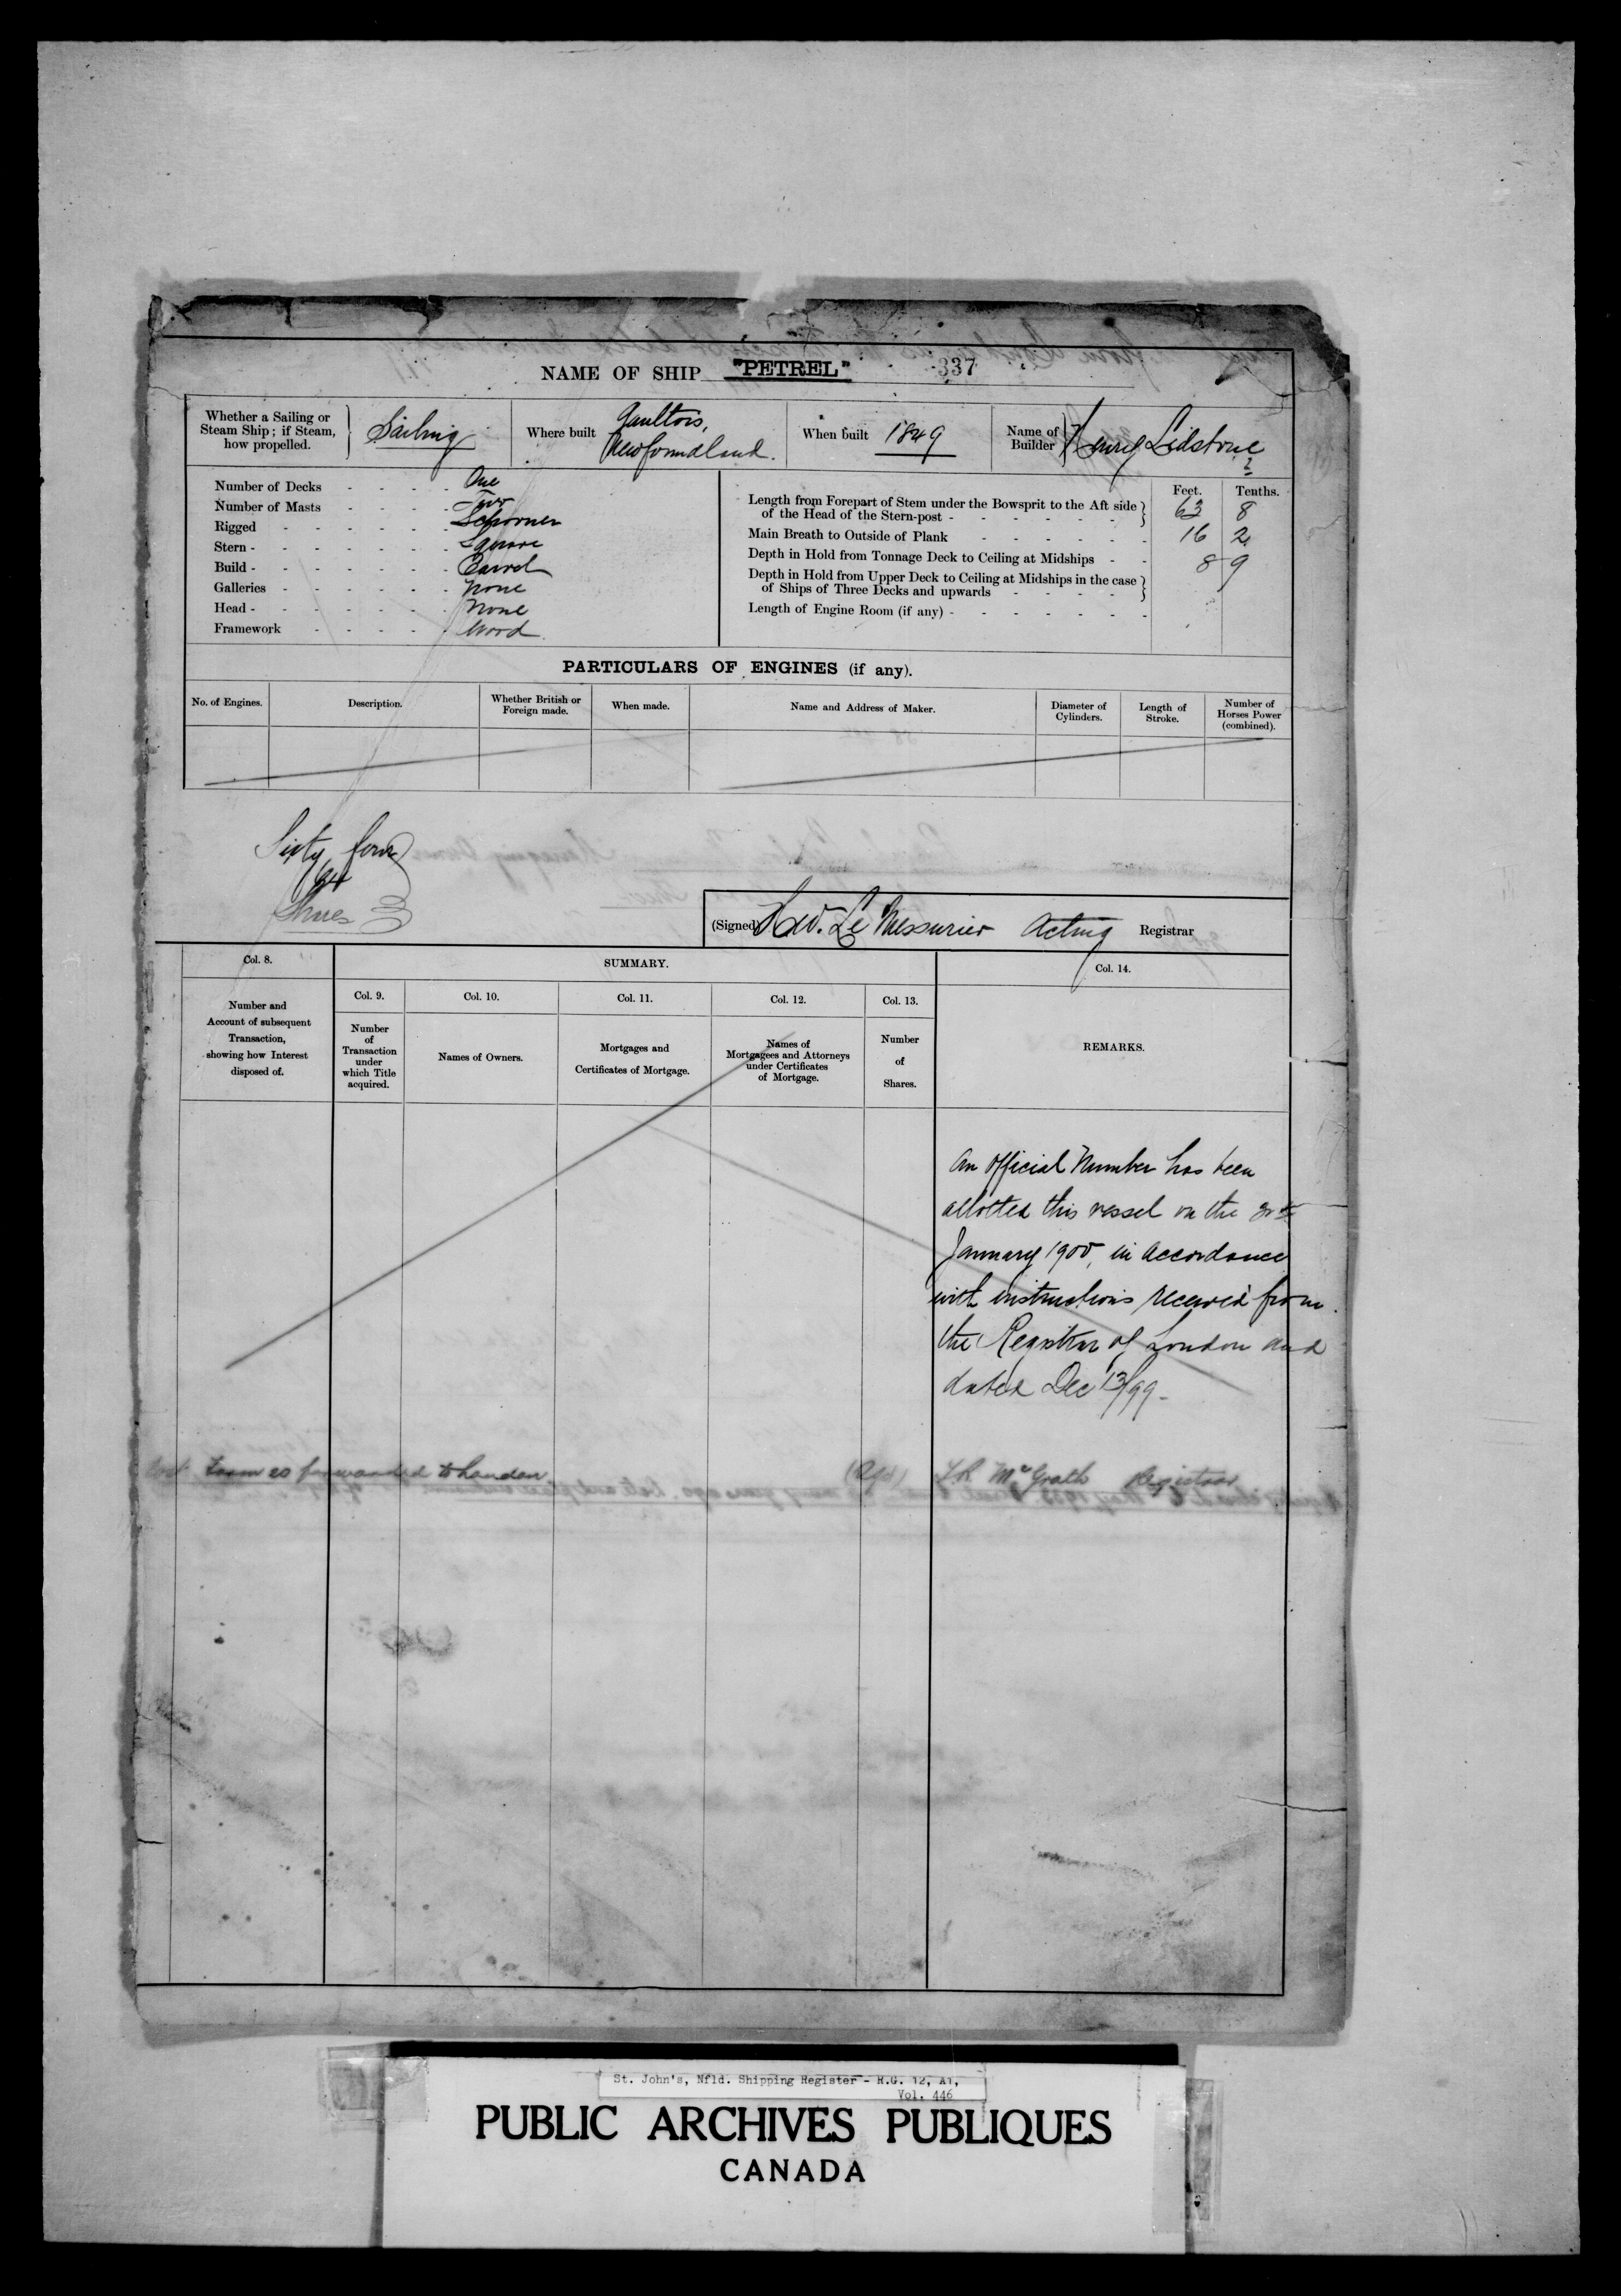 NAME OF SHIP "PETREL" 337
Whether a Sailing or Steam Ship; if Steam, how propelled. Sailing
Where built Gaultois, Newfoundland.
When built 1849
Name of Builder Henry Lidstone
Number of Decks - - - - One
Number of Masts - - - - Two
Rigged - - - - - - Schooner
Stern - - - - - - - Square
Build - - - - - - - Carvel
Galleries - - - - - - None
Head - - - - - - - None
Framework - - - - - Wood
Feet. Tenths.
Length from Forepart of Stem under the Bowsprit to the Aft side of the Head of the Stern-post - - - - - - 63 8
Main Breath to Outside of Plank - - - - - - 16 2
Depth in Hold from Tonnage Deck to Ceiling at Midships - - 8 9
Depth in Hold from Upper Deck to Ceiling at Midships in the case of Ships of Three Decks and upwards - - - -
Length of Engine Room (if any) - - - - - - -
PARTICULARS OF ENGINES (if any).
No. of Engines.
Description.
Whether British or Foreign made.
When made.
Name and Address of Maker.
Diameter of Cylinders.
Length of Stroke.
Number of Horses Power (combined).
Sixty four
64
Shares
(Signed) H.W. Le Messurier Acting Registrar
Col. 8.
Number and Account of subsequent Transaction, showing how Interest disposed of.
SUMMARY.
Col. 9.
Number of Transaction under which Title acquired.
Col. 10.
Names of Owners.
Col. 11.
Mortgages and Certificates of Mortgage.
Col. 12.
Names of Mortgagees and Attorneys under Certificates of Mortgage.
Col. 13.
Number of Shares.
Col. 14.
REMARKS.
An official Number has been
allotted this vessel on the
January 1900, in accordance
with instructions received from
the Registrar of London and
dated Dec 13/99.
Form 20 forwarded to London
(Sgd) McGrath Registrar
St. John's, Nfld. Shipping Register - R.G. 12, A1,
Vol. 446
PUBLIC ARCHIVES PUBLIQUES
CANADA